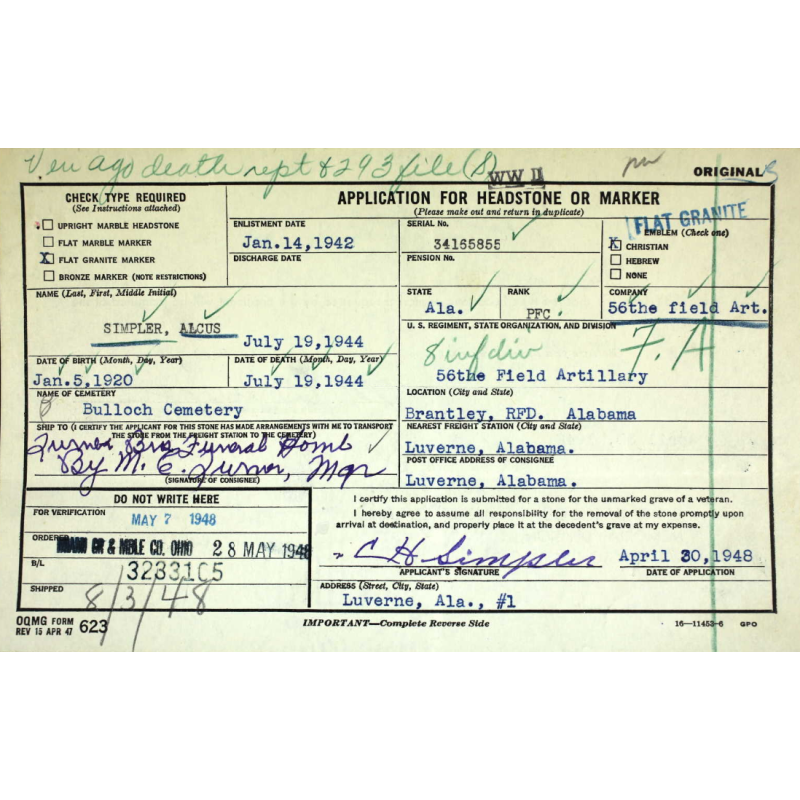 Ver ago death rept & 293 file (S)
WW II
ORIGINAL
CHECK TYPE REQUIRED
(See Instructions attached)
UPRIGHT MARBLE HEADSTONE
FLAT MARBLE MARKER
X FLAT GRANITE MARKER
BRONZE MARKER (NOTE RESTRICTIONS)
APPLICATION FOR HEADSTONE OR MARKER
(Please make out and return in duplicate)
ENLISTMENT DATE
Jan.14,1942
DISCHARGE DATE
SERIAL No.
34165855
PENSION No.
FLAT GRANITE
EMBLEM (Check one)
X CHRISTIAN
HEBREW
NONE
NAME (Last, First, Middle Initial)
SIMPLER, ALCUS
July 19,1944
STATE
Ala.
RANK
PFC.
COMPANY
56the field Art.
U. S. REGIMENT, STATE ORGANIZATION, AND DIVISION
8 inf div F.A
56the Field Artillary
DATE OF BIRTH (Month, Day, Year)
Jan.5,1920
DATE OF DEATH (Month, Day, Year)
July 19,1944
NAME OF CEMETERY
Bulloch Cemetery
LOCATION (City and State)
Brantley, RFD. Alabama
SHIP TO (I CERTIFY THE APPLICANT FOR THIS STONE HAS MADE ARRANGEMENTS WITH ME TO TRANSPORT
THE STONE FROM THE FREIGHT STATION TO THE CEMETERY)
Turner Bros Funeral Home
By M. C. Turner, Mgr
(SIGNATURE OF CONSIGNEE)
NEAREST FREIGHT STATION (City and State)
Luverne, Alabama.
POST OFFICE ADDRESS OF CONSIGNEE
Luverne, Alabama.
DO NOT WRITE HERE
FOR VERIFICATION
MAY 7 1948
ORDERED
GR & MBLE CO. OHIO 28 MAY 1948
B/L
3233105
SHIPPED
8/3/48
I certify this application is submitted for a stone for the unmarked grave of a veteran.
I hereby agree to assume all responsibility for the removal of the stone promptly upon
arrival at destination, and properly place it at the decedent's grave at my expense.
C H Simpler
APPLICANT'S SIGNATURE
April 30,1948
DATE OF APPLICATION
ADDRESS (Street, City, State)
Luverne, Ala., #1
OQMG FORM
REV 15 APR 47 623
IMPORTANT—Complete Reverse Side
16—11453-6 GPO